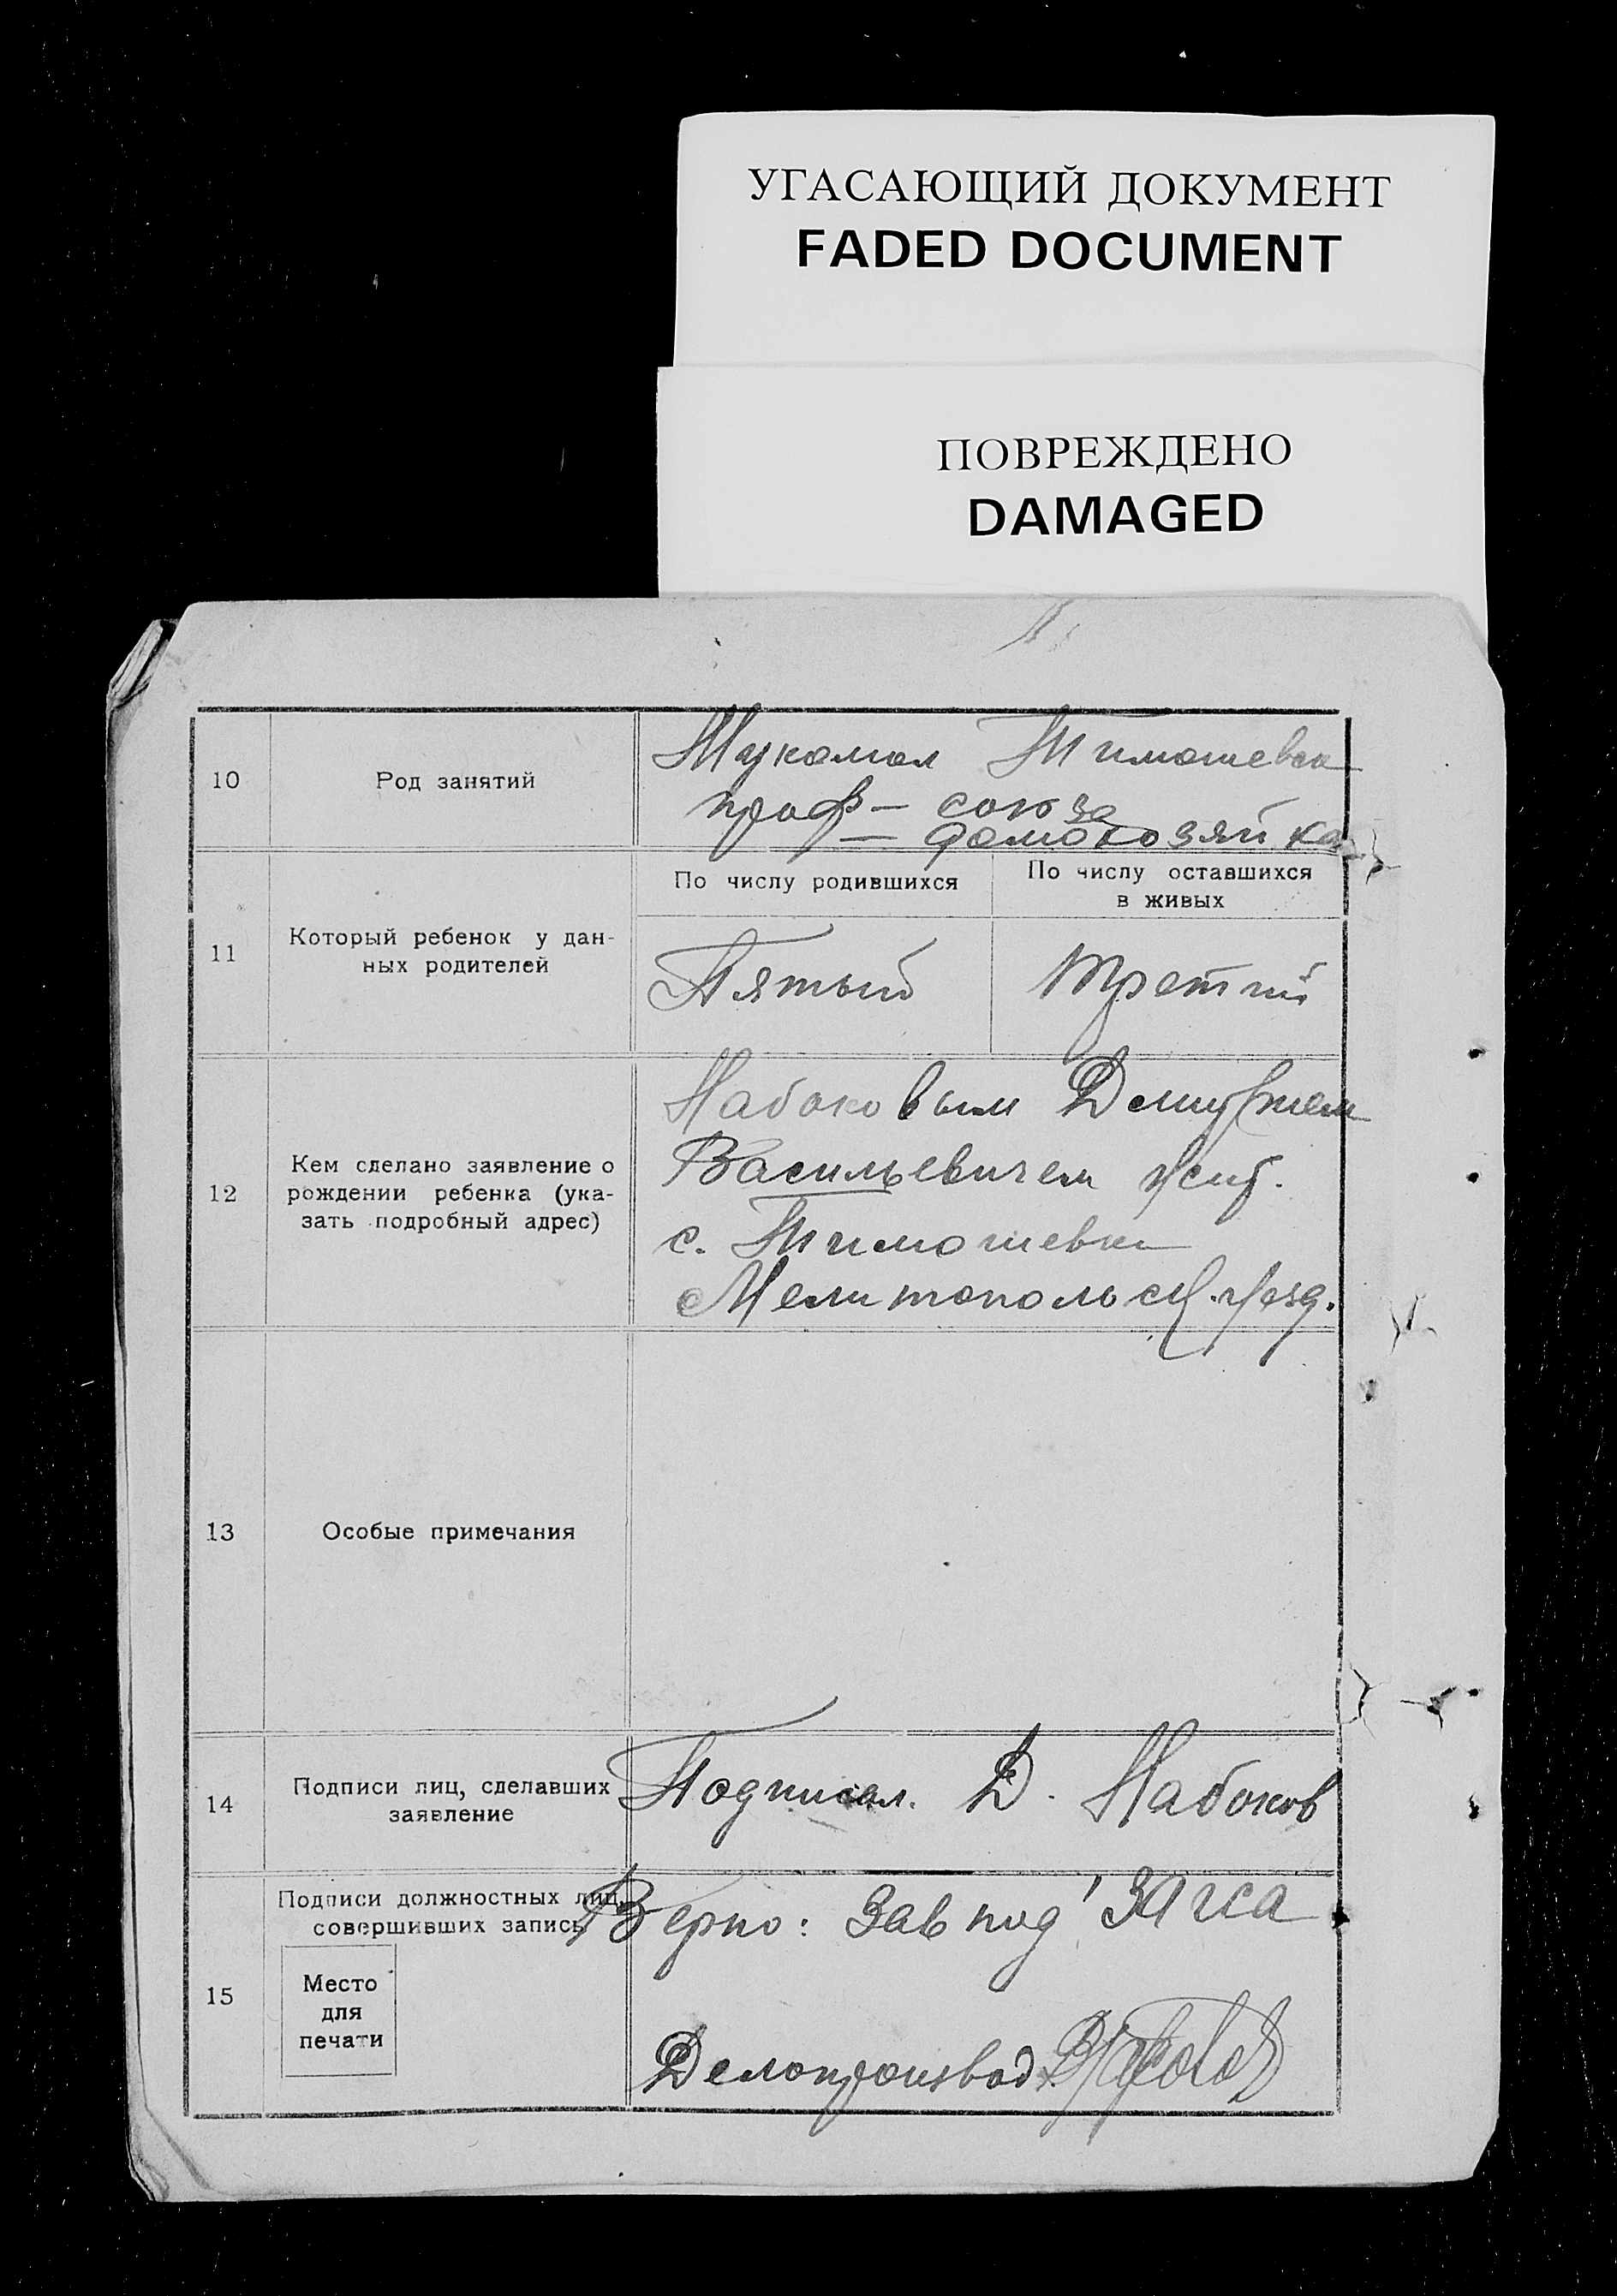 УГАСАЮЩИЙ ДОКУМЕНТ
FADED DOCUMENT
ПОВРЕЖДЕНО
DAMAGED
10
Род занятий
Мукомол Тимошевск
проф – союза
— домохозяйка
11
Который ребенок у дан-
ных родителей
По числу родившихся
По числу оставшихся
в живых
Пятый
Третий
12
Кем сделано заявление о
рождении ребенка (ука-
зать подробный адрес)
Набоковым Дмитрием
Васильевичем жит.
с. Тимошевки
Мелитопольск. уезд.
13
Особые примечания
14
Подписи лиц, сделавших
заявление
Подписал. Д. Набоков
15
Подписи должностных лиц,
совершивших запись
Место
для
печати
Верно: Зав под ЗАГСА
Делопроизвод.